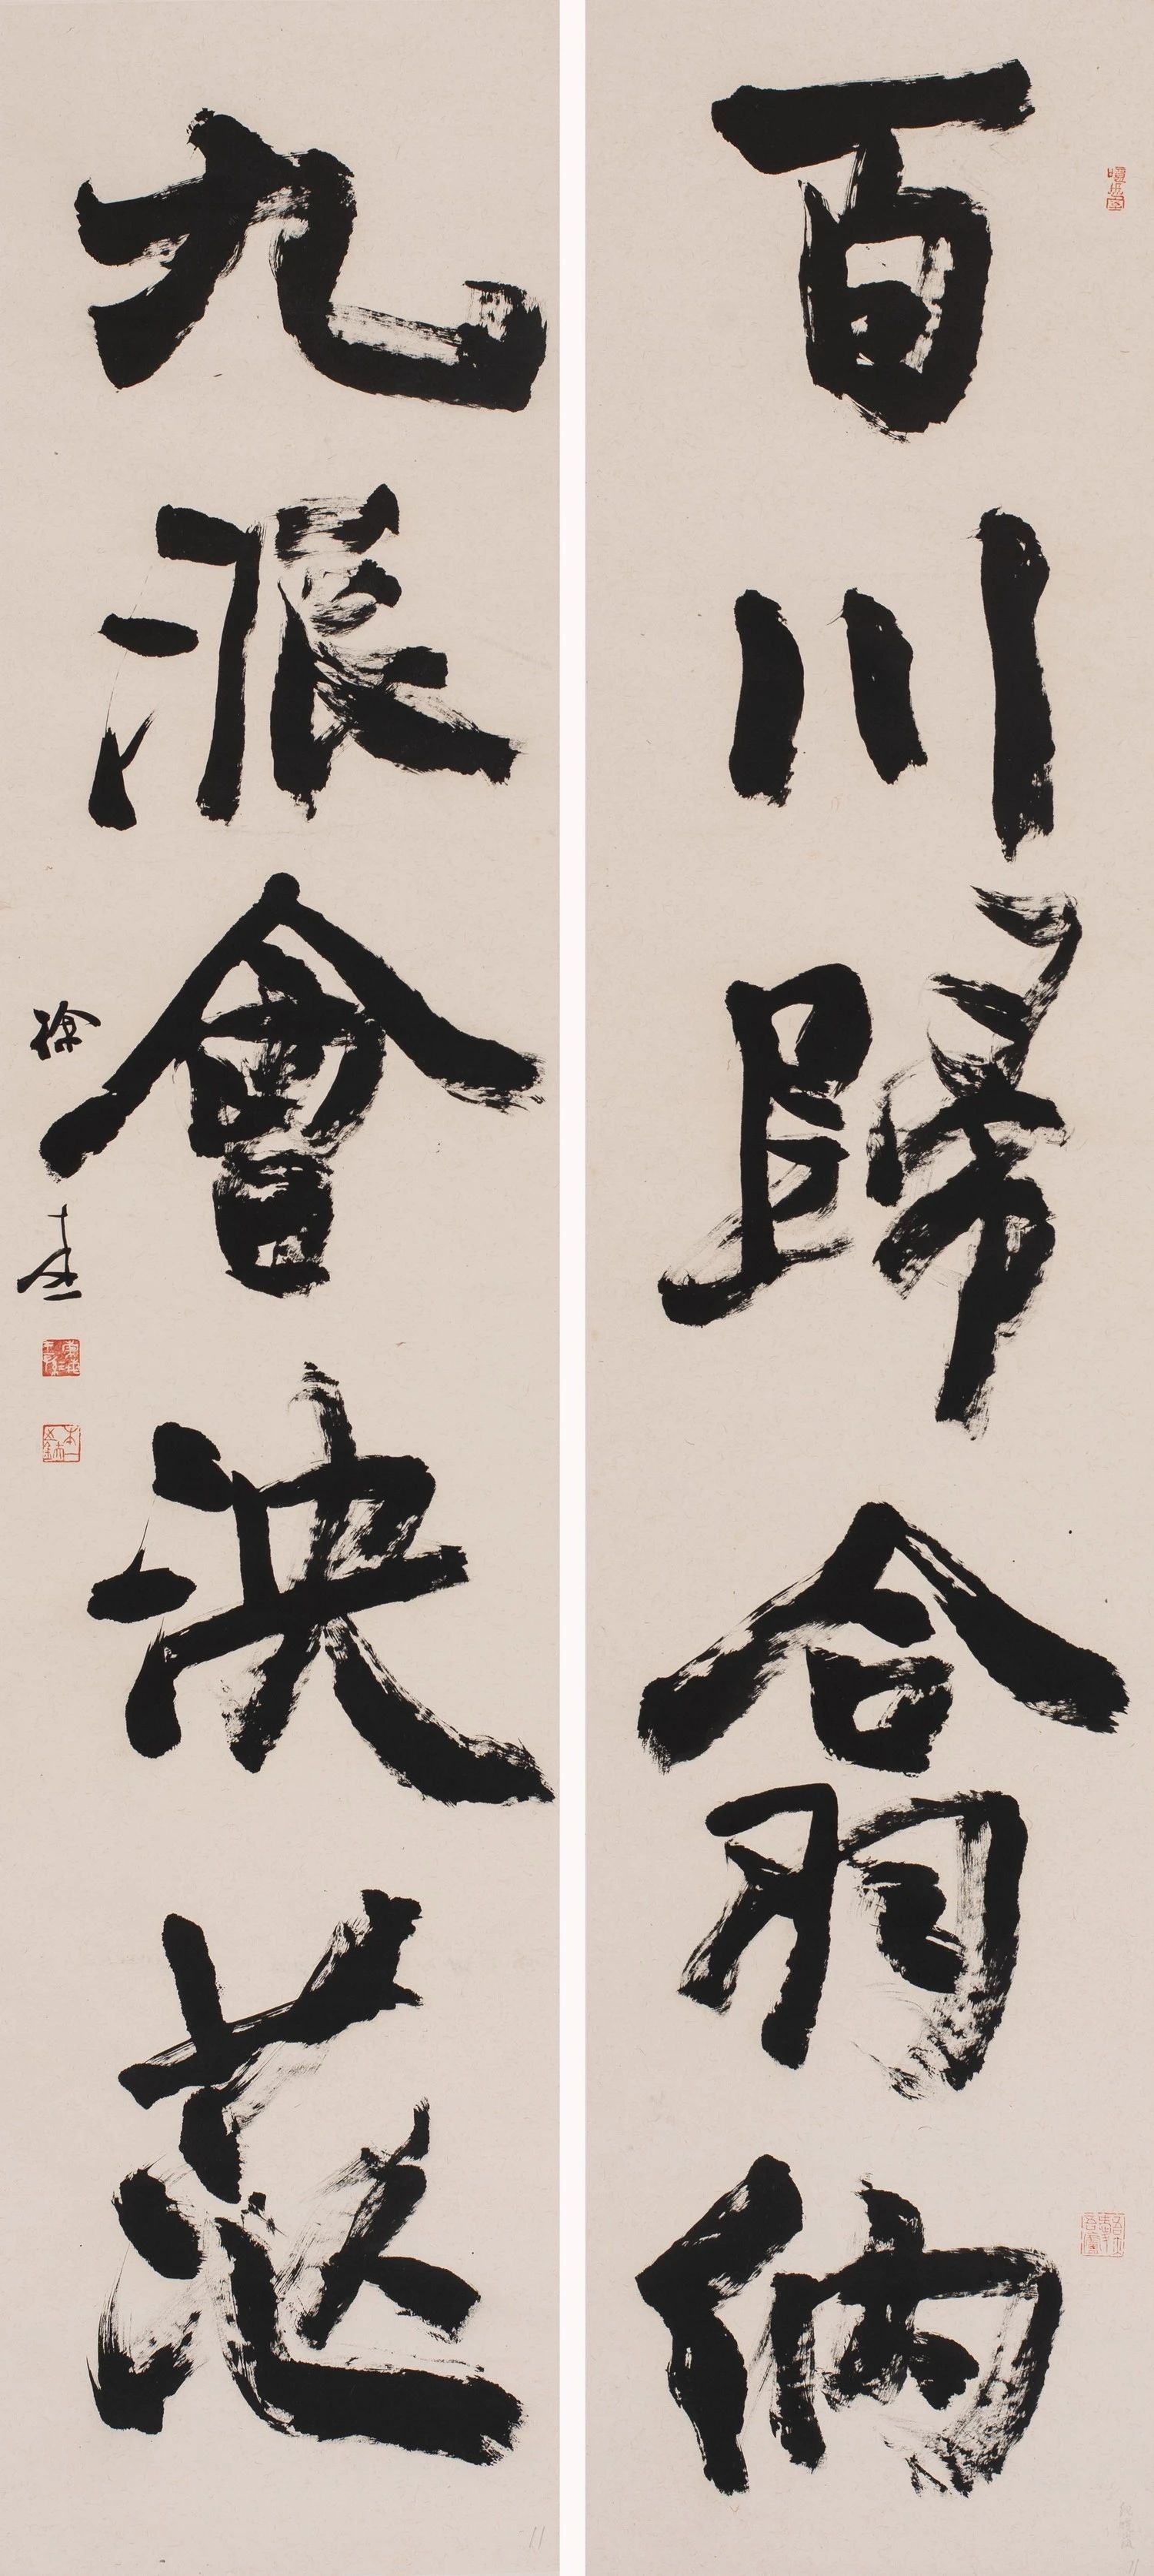 百川歸翕納
九派會泱茫
徐本一